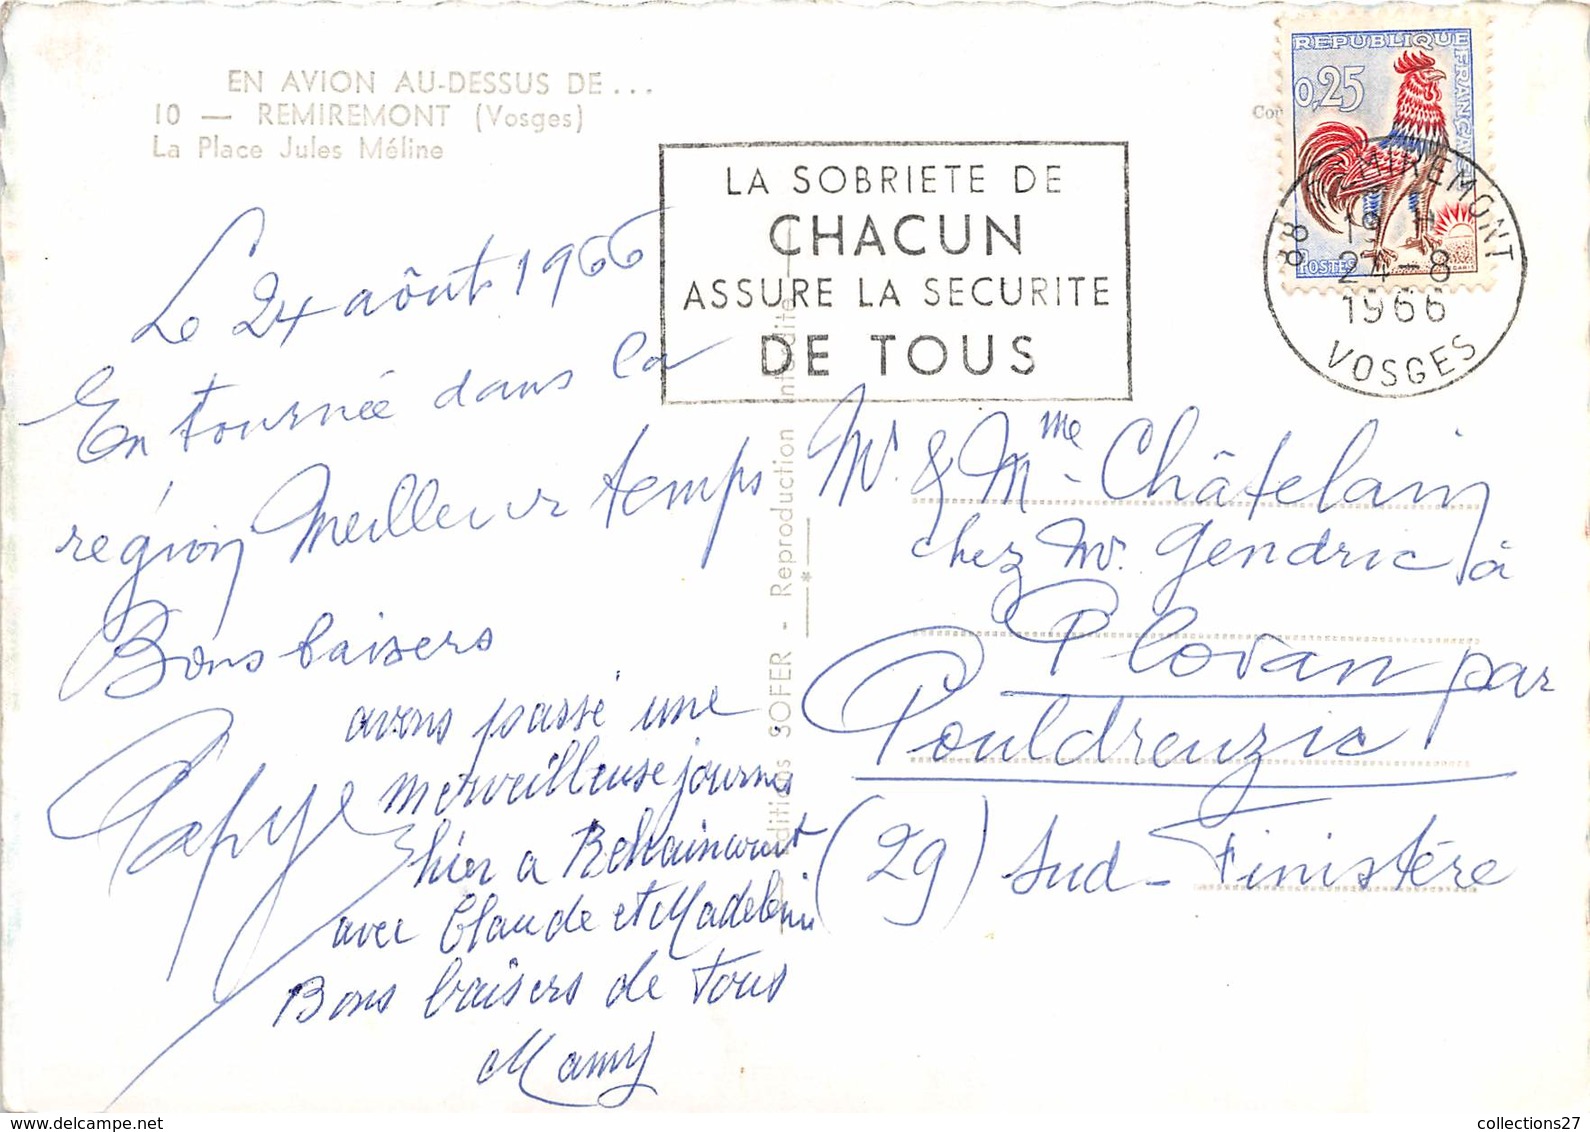 EN AVION AU-DESSUS DE...
10 — REMIREMONT (Vosges)
La Place Jules Méline
REPUBLIQUE
FRANÇAISE
0,25
POSTES
LA SOBRIETE DE
CHACUN
ASSURE LA SECURITE
DE TOUS
88 REMIREMONT
19 H
24-8
1966
VOSGES
Le 24 aôut 1966
En tournée dans la
région Meilleur temps
Bons baisers
Papy
avons passé une
merveilleuse journé
hier a Rehaincourt
avec Claude et Madeleine
Bons baisers de tous
Mamy
Editions SOFER - Reproduction interdite
Mr. & Mme Châtelain
chez Mr. Gendric à
Plovan par
Pouldreuzic
(29) Sud-Finistére
collections27